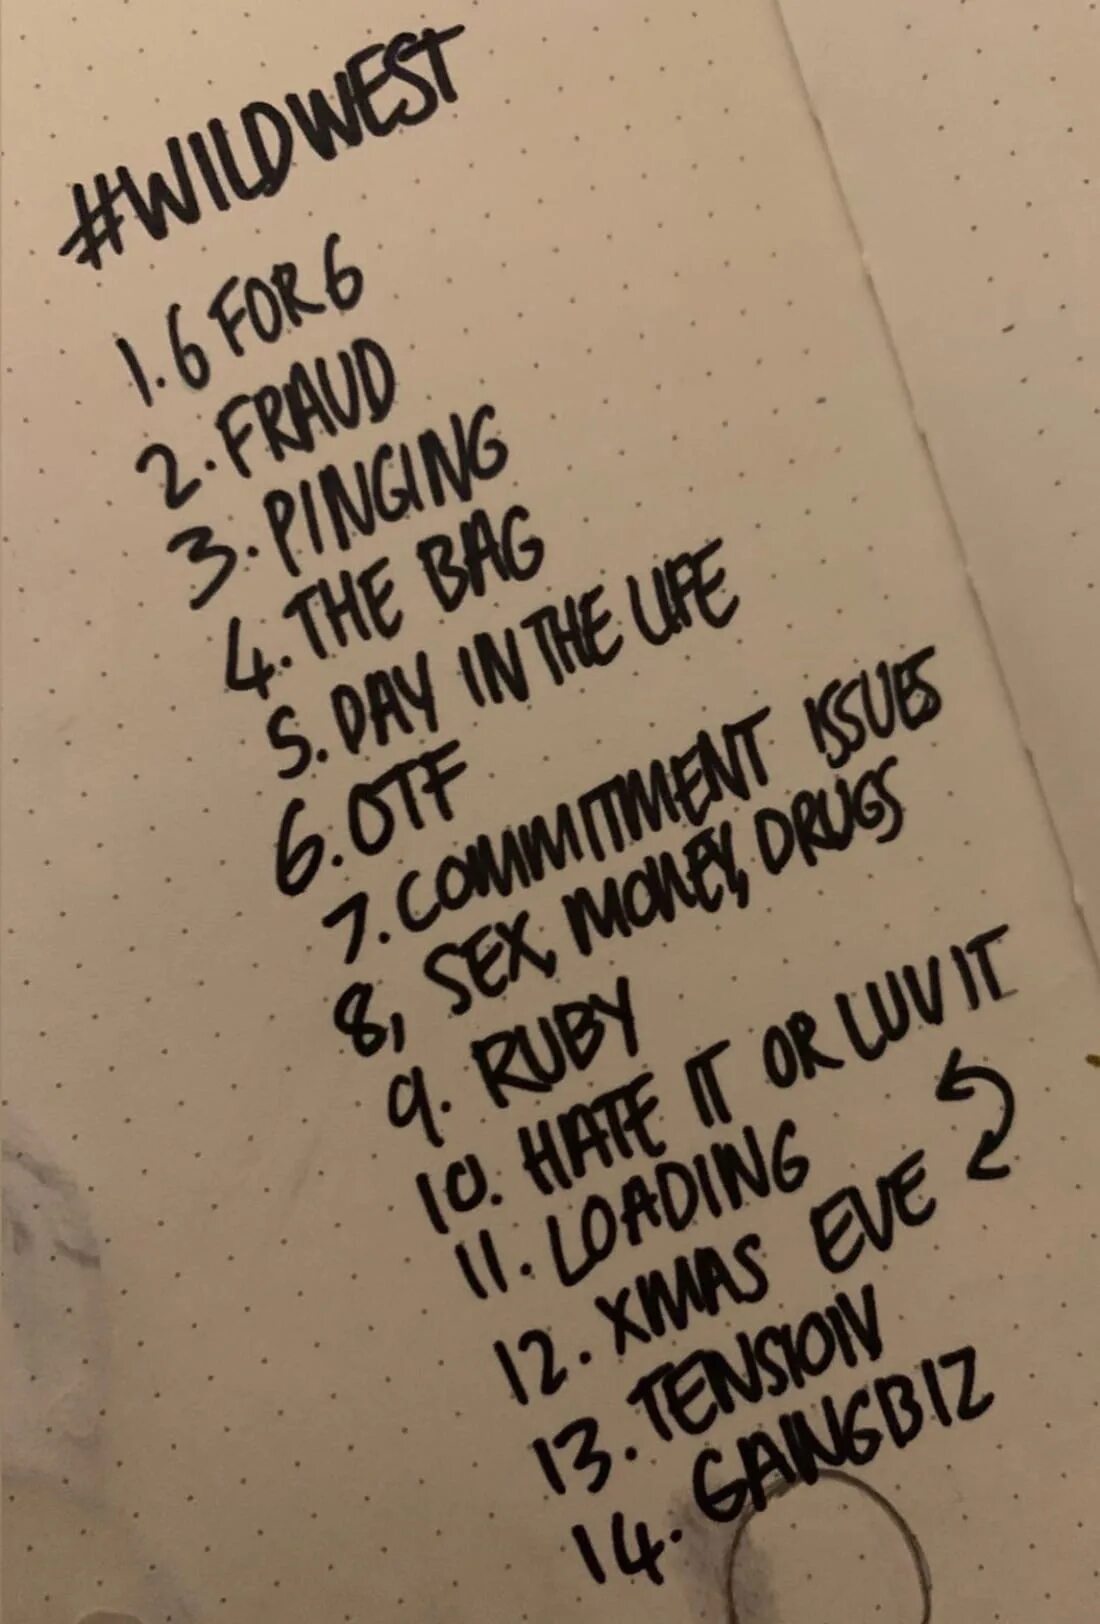 #WILDWEST
1. 6 FOR 6
2. FRAUD
3. PINGING
4. THE BAG
5. DAY IN THE LIFE
6. OTF
7. COMMITMENT ISSUES
8, SEX, MONEY, DRUGS
9. RUBY
10. HATE IT OR LUV IT
11. LOADING
12. XMAS EVE
13. TENSION
14. GANGBIZ